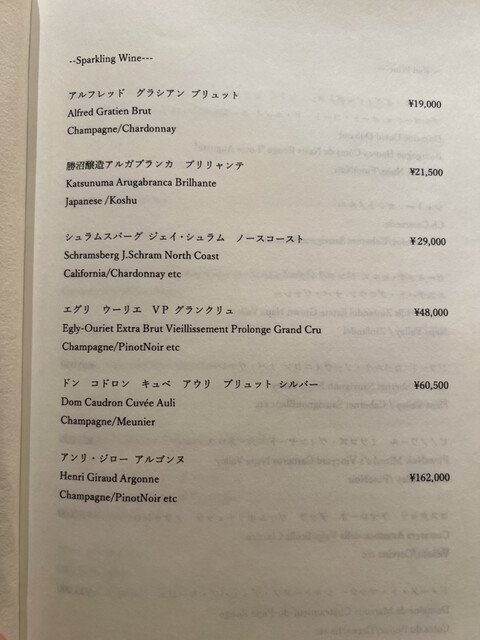 --Sparkling Wine---
アルフレッド　グラシアン ブリュット
¥19,000
Alfred Gratien Brut
Champagne/Chardonnay
勝沼醸造アルガブランカ　ブリリャンテ
¥21,500
Katsunuma Arugabranca Brilhante
Japanese /Koshu
シュラムスバーグ ジェイ・シュラム　ノースコースト
¥ 29,000
Schramsberg J.Schram North Coast
California/Chardonnay etc
エグリ　ウーリエ　ＶＰ グランクリュ
¥48,000
Egly-Ouriet Extra Brut Vieillissement Prolonge Grand Cru
Champagne/PinotNoir etc
ドン　コドロン　キュベ　アウリ　ブリュット シルバー
¥60,500
Dom Caudron Cuvée Auli
Champagne/Meunier
アンリ・ジロー アルゴンヌ
¥162,000
Henri Giraud Argonne
Champagne/PinotNoir etc